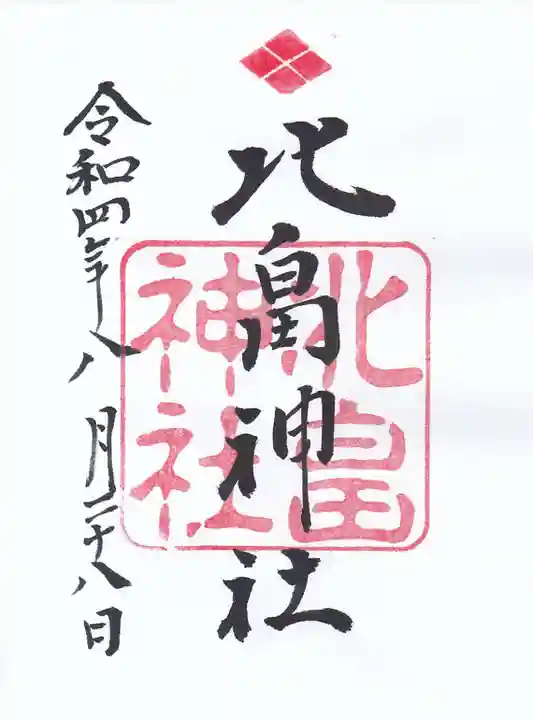 北畠神社
北畠
神社
令和四年八月二十八日